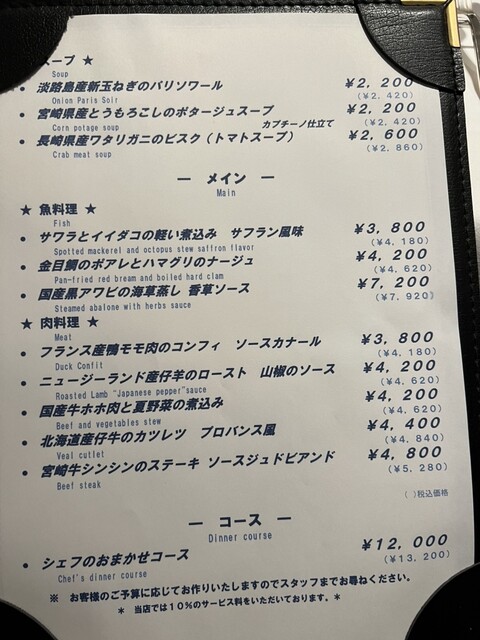 スープ ★
Soup
• 淡路島産新玉ねぎのパリソワール ¥2, 200
Onion Paris Soir (¥2, 420)
• 宮崎県産とうもろこしのポタージュスープ ¥2, 200
Corn potage soup カプチーノ仕立て (¥2, 420)
• 長崎県産ワタリガニのビスク（トマトスープ） ¥2, 600
Crab meat soup (¥2, 860)
― メイン ―
Main
★ 魚料理 ★
Fish
• サワラとイイダコの軽い煮込み サフラン風味 ¥3, 800
Spotted mackerel and octopus stew saffron flavor (¥4, 180)
• 金目鯛のポアレとハマグリのナージュ ¥4, 200
Pan-fried red bream and boiled hard clam (¥4, 620)
• 国産黒アワビの海草蒸し 香草ソース ¥7, 200
Steamed abalone with herbs sauce (¥7, 920)
★ 肉料理 ★
Meat
• フランス産鴨モモ肉のコンフィ ソースカナール ¥3, 800
Duck Confit (¥4, 180)
• ニュージーランド産仔羊のロースト 山椒のソース ¥4, 200
Roasted Lamb "Japanese pepper"sauce (¥4, 620)
• 国産牛ホホ肉と夏野菜の煮込み ¥4, 200
Beef and vegetables stew (¥4, 620)
• 北海道産仔牛のカツレツ プロバンス風 ¥4, 400
Veal cutlet (¥4, 840)
• 宮崎牛シンシンのステーキ ソースジュドビアンド ¥4, 800
Beef steak (¥5, 280)
( )税込価格
― コース ―
Dinner course
• シェフのおまかせコース ¥12, 000
Chef's dinner course (¥13, 200)
※ お客様のご予算に応じてお作りいたしますのでスタッフまでお尋ねください。
＊ 当店では１０％のサービス料をいただいております。＊